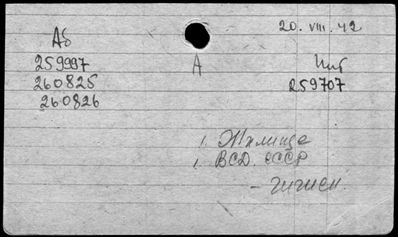 20. VIII. 42
Аб
А
Инб
259997
259707
260825
260826
1. Жилище
1. ВСД. СССР
– гигиен.